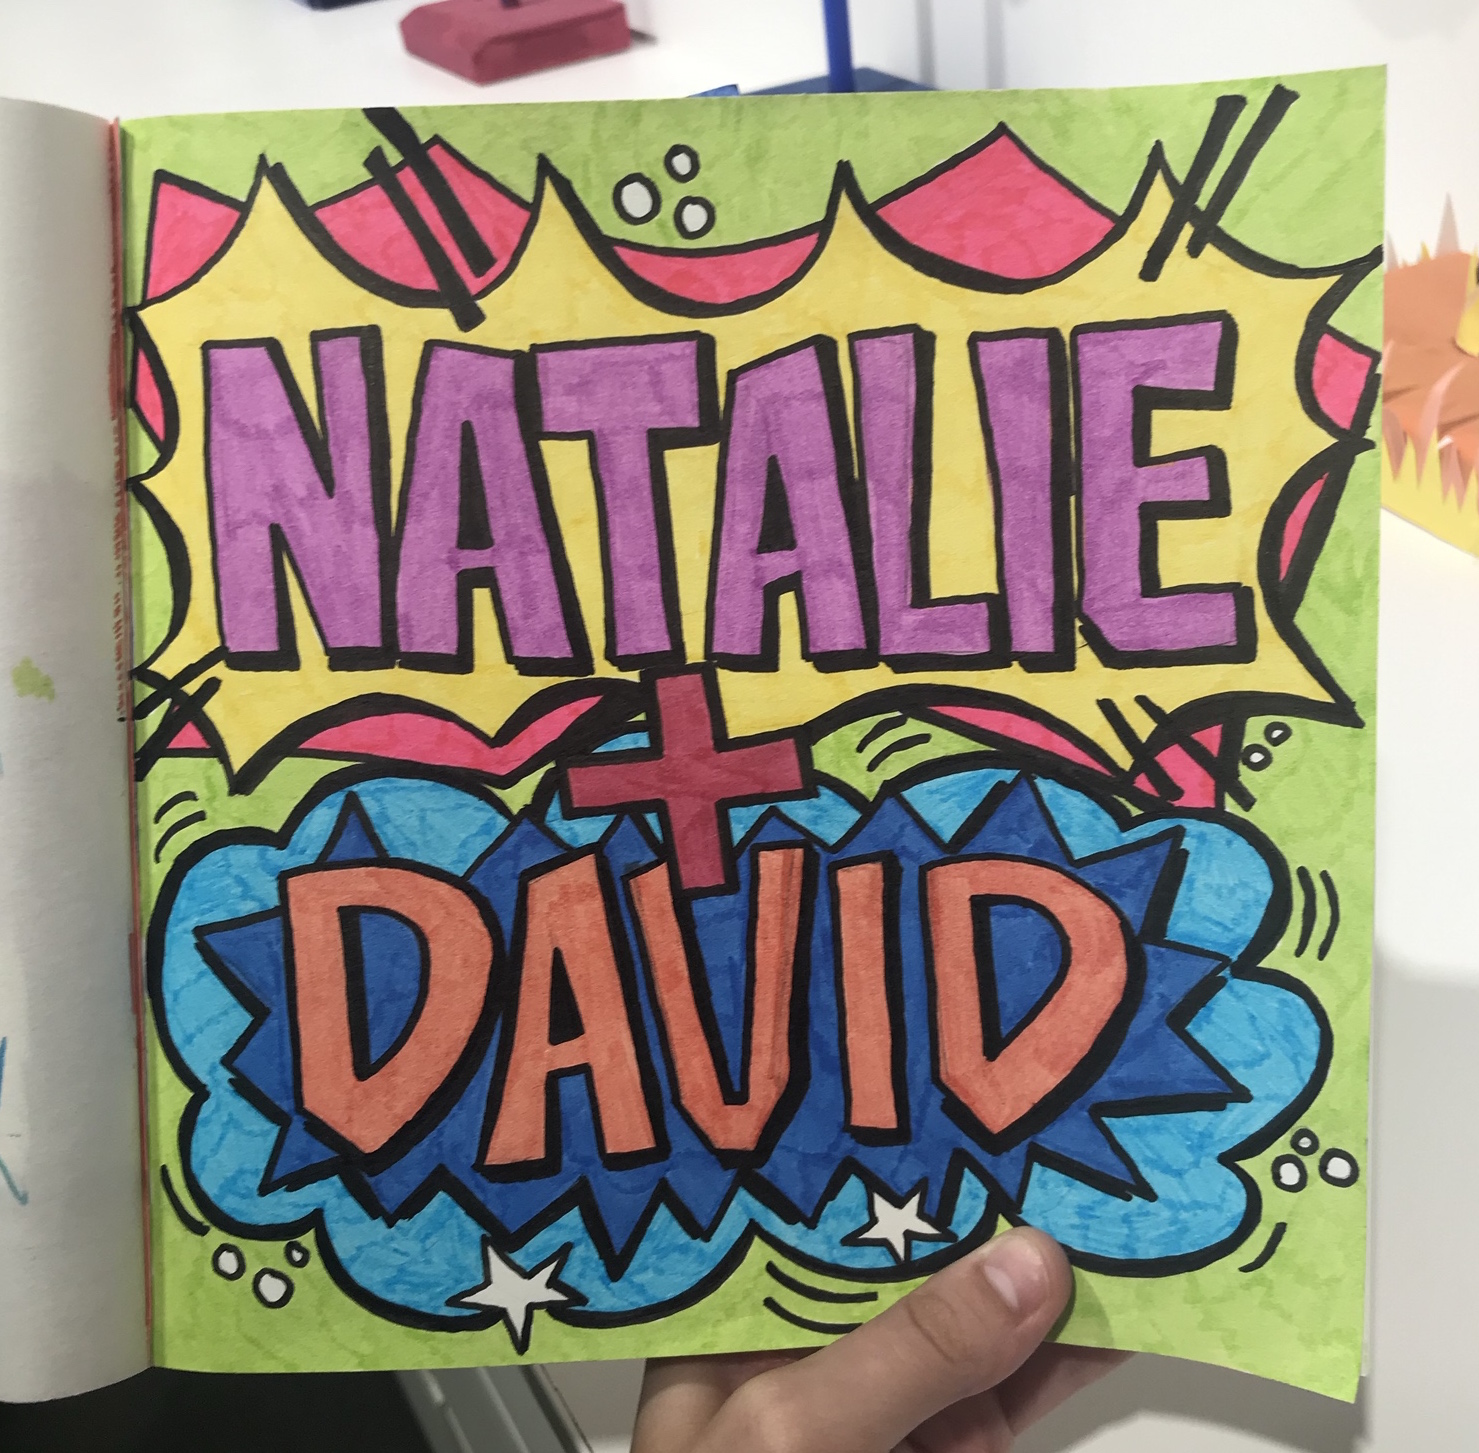 NATALIE
+
DAVID